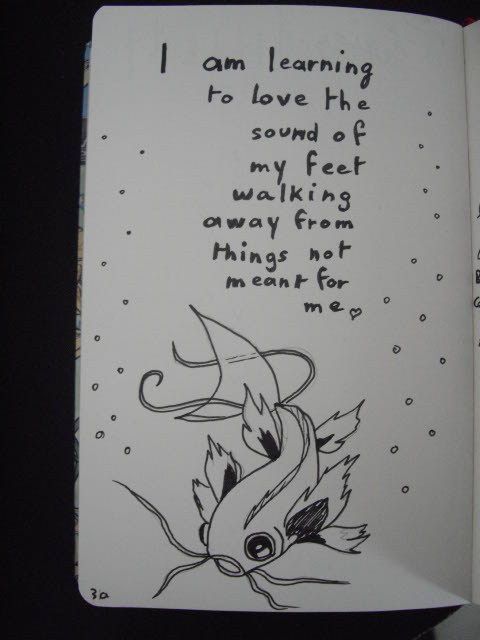 I am learning
to love the
sound of
my feet
walking
away from
things not
meant for
me
30